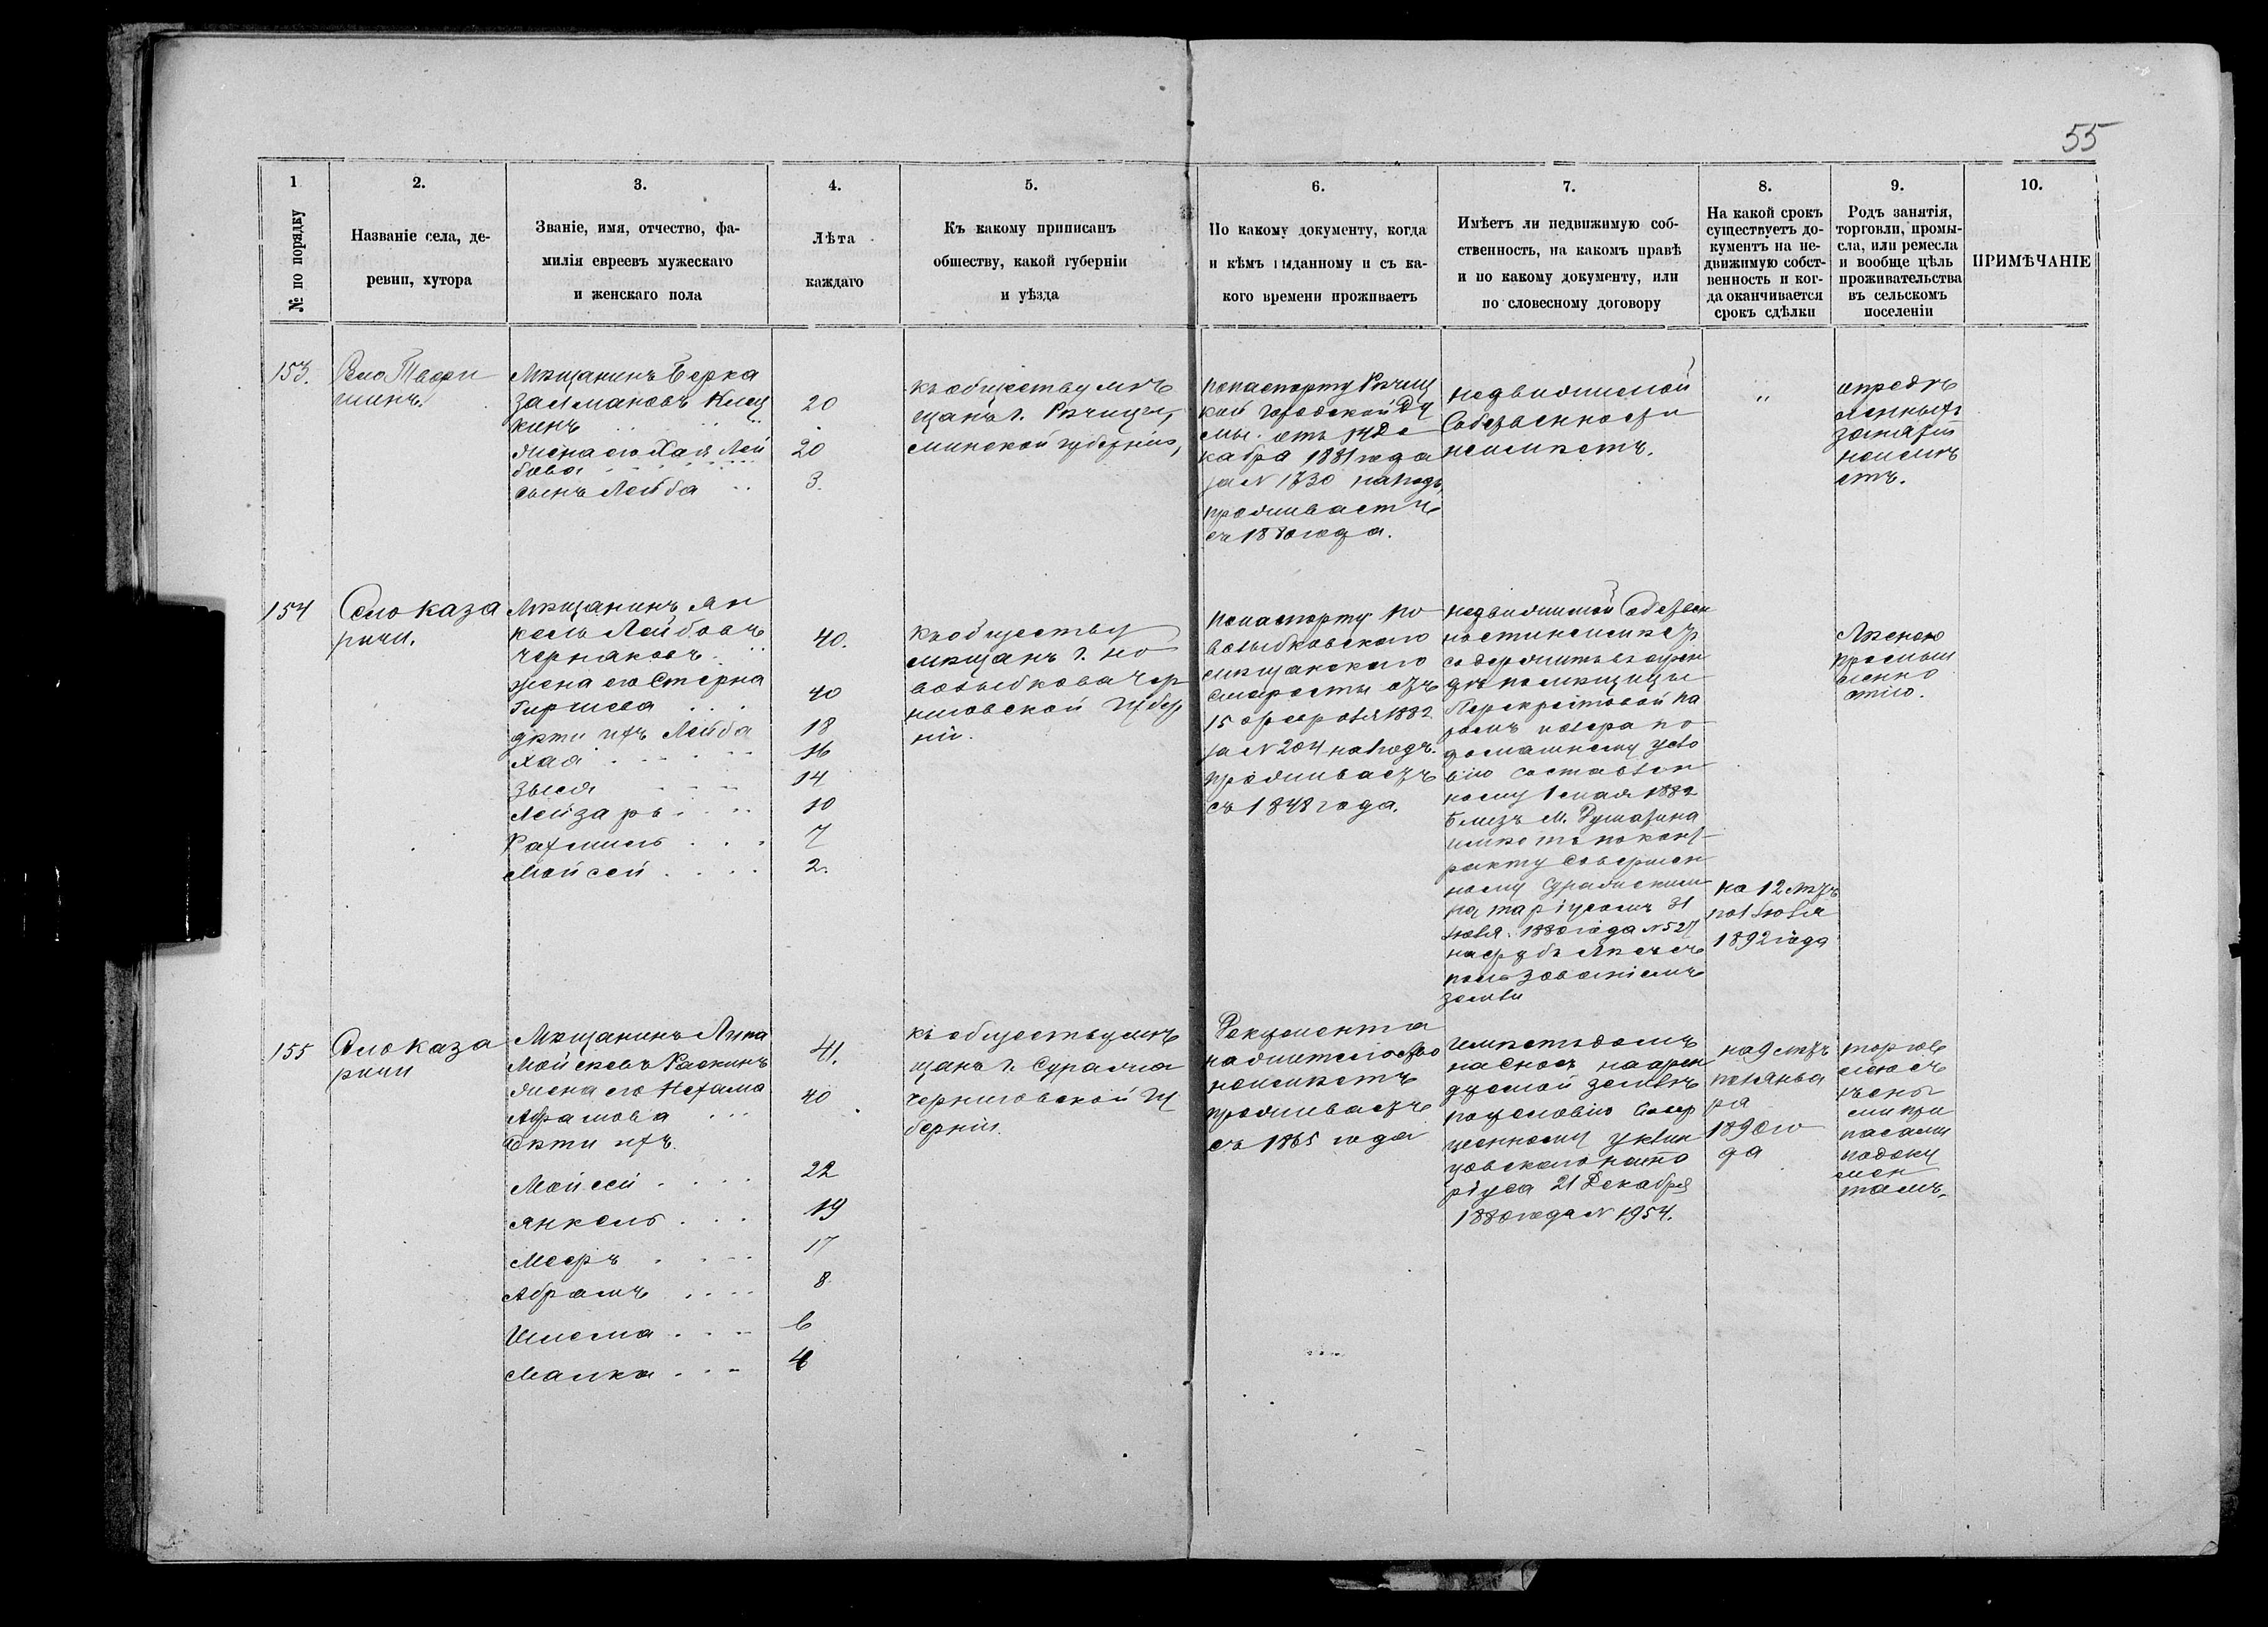 55
1
№ по порядку
2.
Названіе села, де-
ревни, хутора
3.
Званіе, имя, отчество, фа-
милія евреевъ мужескаго
и женскаго пола
4.
Лѣта
каждаго
5.
Къ какому приписанъ
обществу, какой губерніи
и уѣзда
6.
По какому документу, когда
и кѣмъ выданному и съ ка-
кого времени проживаетъ
7.
Имѣетъ ли недвижимую соб-
ственность, на какомъ правѣ
и по какому документу, или
по словесному договору
8.
На какой срокъ
существуетъ до-
кументъ на не-
движимую собст-
венность и ког-
да оканчивается
срокъ сдѣлки
9.
Родъ занятія,
торговли, промы-
сла, или ремесла
и вообще цѣль
проживательства
въ сельскомъ
поселеніи
10.
ПРИМѢЧАНІЕ
153.
Село Твори
шинъ.
Мѣщанинъ Берка
Залмановъ
кинъ
20
жена его Хая Лей
бова
20
сынъ Лейба
3.
къ обществу мѣ
щанъ г. Рѣчицы,
минской губерніи,
по паспорту Рѣчиц
кой городской Ду
мы отъ 14 Де
кабря 1881 года
за № 1730 на годъ,
проживаетъ
съ 1880 года.
недвижимой
собственности
неимѣетъ.
"
опредѣ
ленныхъ
занятій
неимѣ
етъ.
154
Село Каза
ричи.
Мѣщанинъ Ян
кель Лейбовъ
Черняковъ
40.
жена его Стерна
Гиршева
40
дѣти ихъ Лейба
18
Хая
16
Зыся
14
Лейзаръ
10
Рахмиль
7
Мойсей
2.
къ обществу
мѣщанъ г. Но
возыбкова Чер
ниговской губер
ніи.
по паспорту Но
возыбковскаго
мѣщанскаго
старосты отъ
15 февраля 1882
за № 204 на годъ.
проживаетъ
съ 1848 года.
недвижимой собствен
ности неимѣетъ
содержитъ въ арен
дѣ помѣщицы
Перекрестовой па
ромъ по
домашнему усло
вію составлен
ному 1 мая 1882
близъ м.
имѣетъ по конт
ракту совершен
ному Суражскимъ
нотаріусомъ 31
Іюля 1880 года № 527
на срубъ лѣса съ
пользованіемъ
земли
на 12 лѣтъ
по 1 Іюля
1892 года
Лѣсною
промыш
ленно
стію.
155
Село Каза
ричи
Мѣщанинъ Липа
Мойсеевъ Раскинъ
41.
жена его Нехама
Абрамова
40
Дѣти ихъ.
Мойсей
22
Янкель
19
Мееръ
17
Абрамъ
8
Шлема
6
Малка
4
къ обществу мѣ
щанъ г. Суража
Черниговской гу
берніи.
Документа
на жительство
неимѣетъ
проживаетъ
съ 1865 года
имѣетъ домъ
на сносъ на арен
дуемой землѣ
по условію совер
шенному у клин
цовскаго нота
ріуса 21 Декабря
1880 года № 1954.
на 9 лѣтъ
по января
1890 го
да
торгов
лею съ
ѣсны
ми при
пасами
по доку
мен
тамъ.